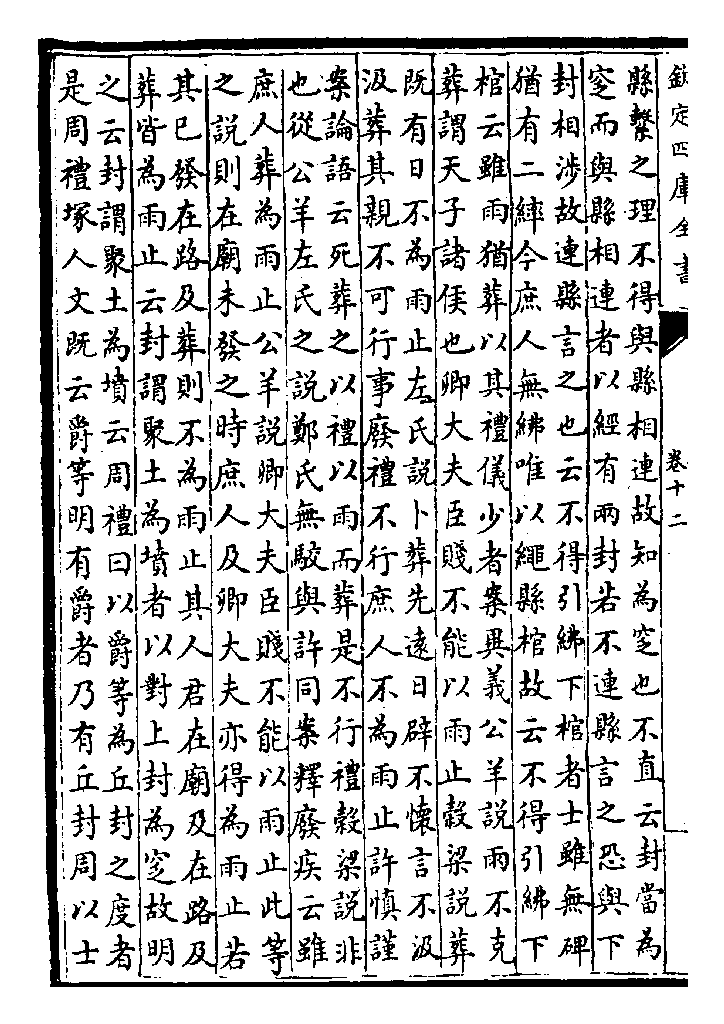 欽定四庫全書
卷十二
縣繫之理不得與縣相連故知為窆也不直云封當為
窆而與縣相連者以經有兩封若不連縣言之恐與下
封相涉故連縣言之也云不得引紼下棺者士雖無碑
猶有二繂今庶人無紼唯以繩縣棺故云不得引紼下
棺云雖雨猶葬以其禮儀少者案異義公羊說雨不克
葬謂天子諸侯也卿大夫臣賤不能以雨止穀梁說葬
既有日不為雨止左氏說卜葬先遠日辟不懷言不汲
汲葬其親不可行事廢禮不行庶人不為雨止許慎謹
案論語云死葬之以禮以雨而葬是不行禮穀梁說非
也從公羊左氏之說鄭氏無駮與許同案釋廢疾云雖
庶人葬為雨止公羊說卿大夫臣賤不能以雨止此等
之說則在廟未發之時庶人及卿大夫亦得為雨止若
其已發在路及葬則不為雨止其人君在廟及在路及
葬皆為雨止云封謂聚土為墳者以對上封為窆故明
之云封謂聚土為墳云周禮曰以爵等為丘封之度者
是周禮塚人文既云爵等明有爵者乃有丘封周以士